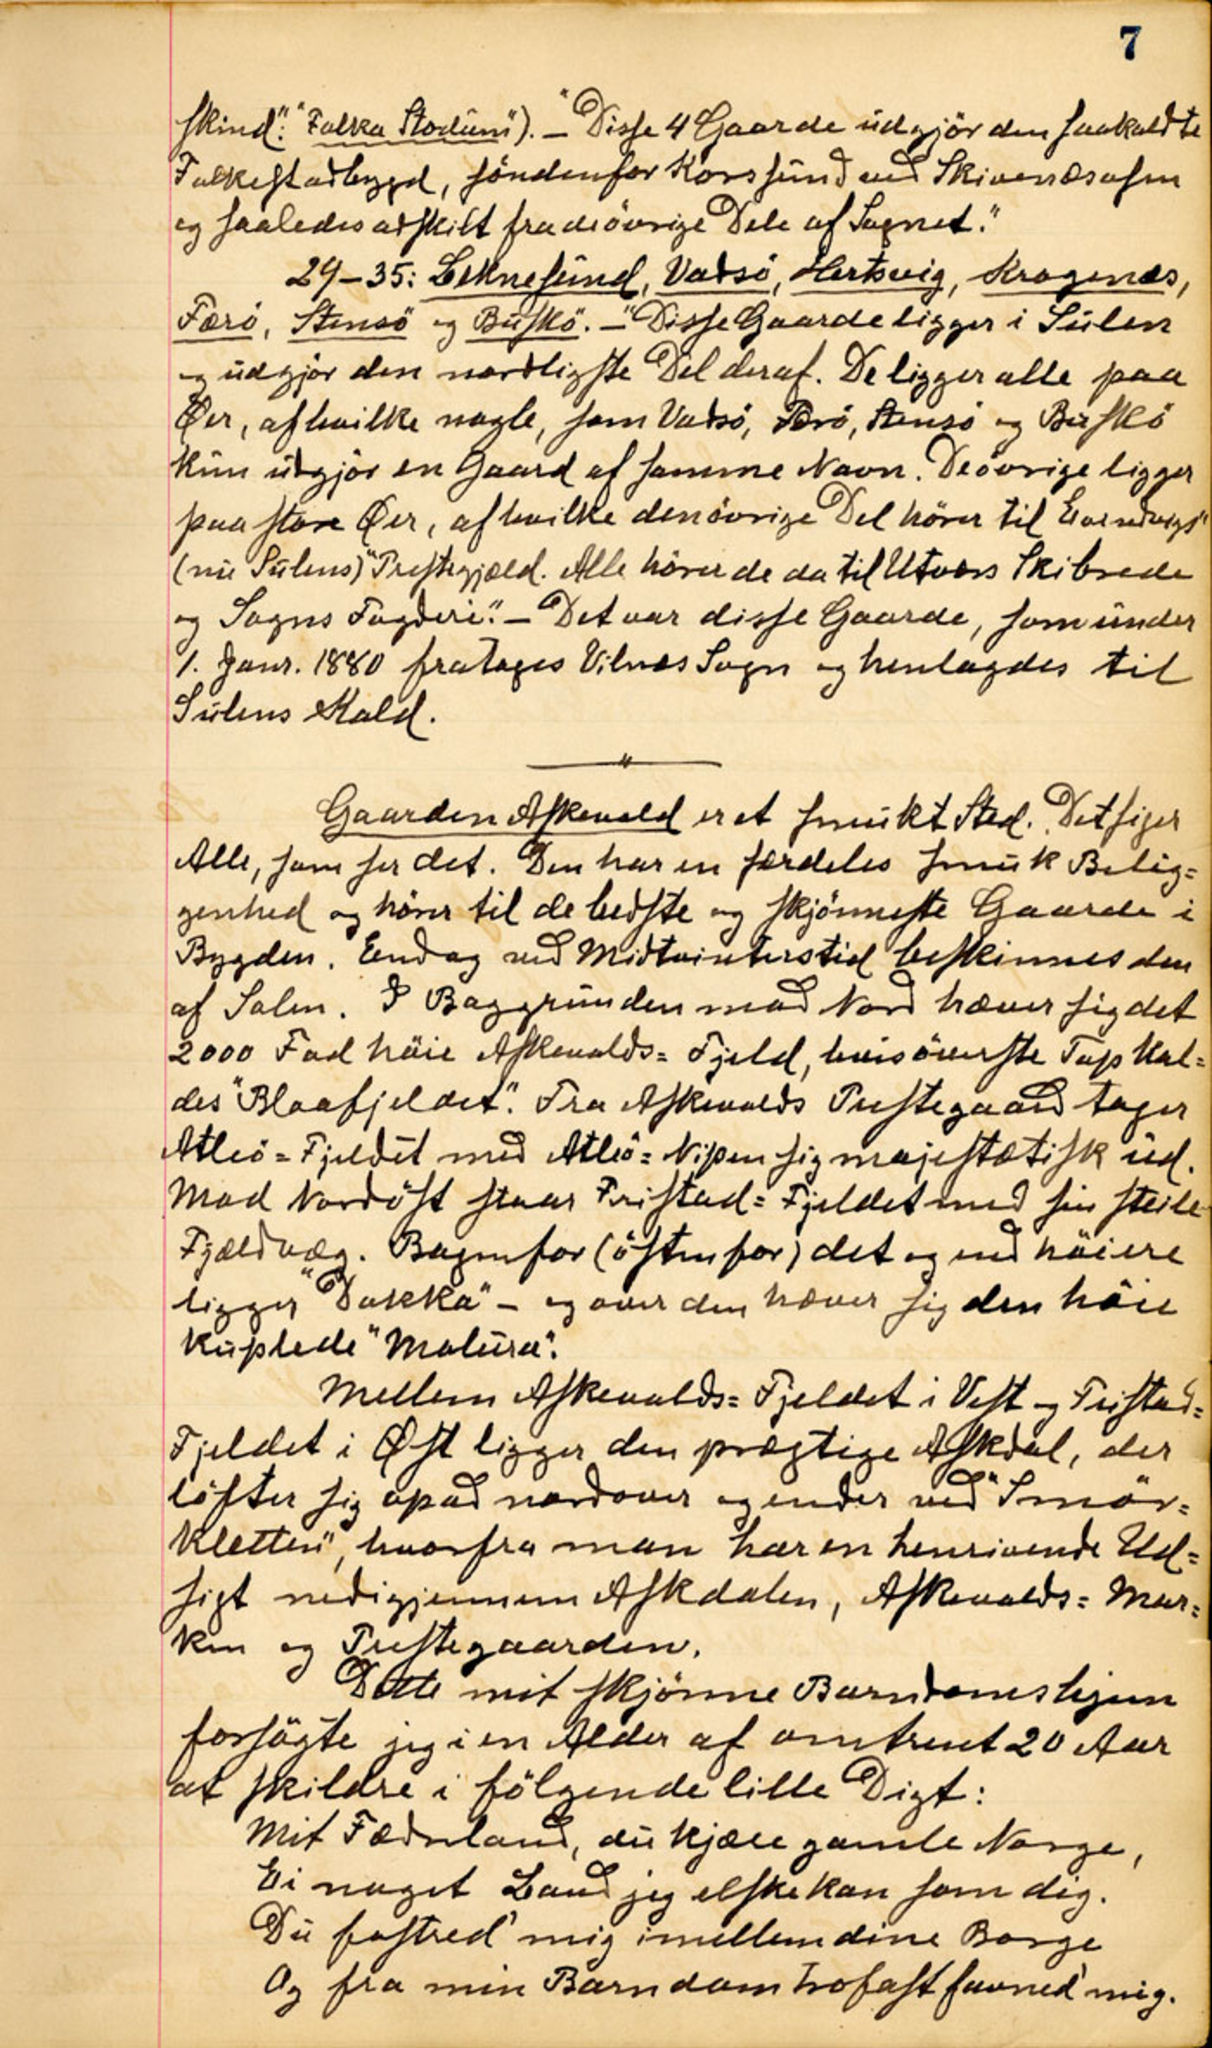 7
skind": "Falka Stodum"). – "Disse 4 Gaarde udgjör den saakaldte
Falkestadbygd, söndenfor Korssund ved Skivenæsosen
og saaledes adskilt fra de övrige Dele af Sognet."
29–35: Leknesund, Vadsö, Hertsvig, Kragenæs,
Færö, Stensö og Buskö. – "Disse Gaarde ligger i Sulen
og udgjör den nordligste Del deraf. De ligger alle paa
Øer, af hvilke nogle, som Vadsö, Færö, Stensö og Buskö
kun udgjör en Gaard af samme Navn. De övrige ligger
paa store Øer, af hvilke den övrige Del hörer til Evindvigs"
(nu Sulens) "Prestegjæld. Alle hörer de da til Utvær Skibrede
og Sogns Fogderi". – Det var disse Gaarde, som under
1. Janr. 1880 fratoges Vilnes Sogn og henlagdes til
Sulens Kald.
Gaarden Askevold er et smukt Sted. Det siger
Alle, som ser det. Den har en særdeles smuk Belig=
genhed og hörer til de bedste og skjönneste Gaarde i
Bygden. Endog ved Midtvinterstid beskinnes den
af Solen. I Baggrunden mod Nord hæver sig det
2000 Fod höie Askevolds= Fjeld, hvis överste Top kal=
des "Blaafjeldet". Fra Askevolds Prestegaard tager
Atleö= Fjeldet med Atleö= Nipen sig majestætisk ud.
Mod Nordöst staar Fristad= Fjeldet med sin steile
Fjældvæg. Bagenfor (östenfor) det og end höiere
ligger "Dukka" – og over den hæver sig den höie
kuplede "Molura".
Mellem Askevolds= Fjeldet i Vest og Fristad=
Fjeldet i Øst ligger den prægtige Askdal, der
löfter sig opad nordover og ender ved "Smör=
kletten", hvorfra man har en henrivende Ud=
sigt nedigjennem Askdalen, Askevolds= Mar=
ken og Prestegaarden.
Dette mit skjönne Barndomshjem
forsögte jeg i en Alder af omtrent 20 Aar
at skildre i fölgende lille Digt:
Mit Fædreland, du kjære gamle Norge,
Ei noget Land jeg elske kan som dig.
Du fostred' mig imellem dine Borge
Og fra min Barndom trofast favned' mig.